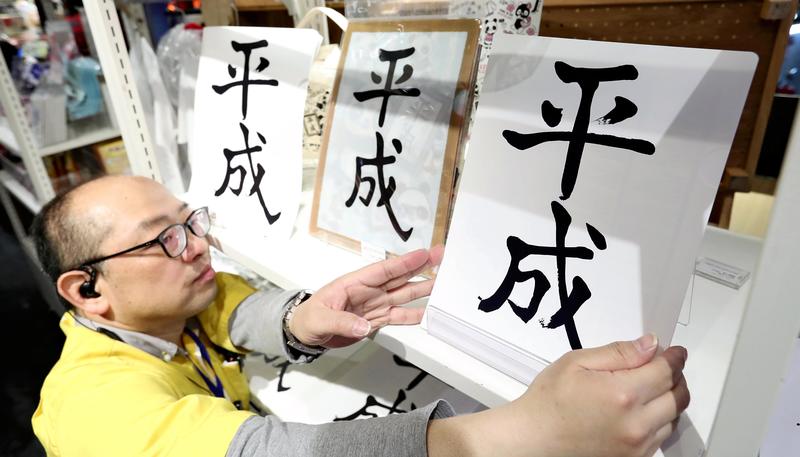 平
成
平
成
平
成